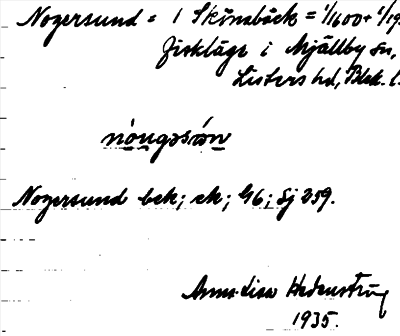 Nogersund = 1 Skönabäck = 1/1600 + 1/19
fiskläge i Mjällby sn,
Listers hd, Blek. l.
nòugəsón
Nogersund bck; ek; G6; Sj 259.
Anna-Lisa Hedenström
1935.